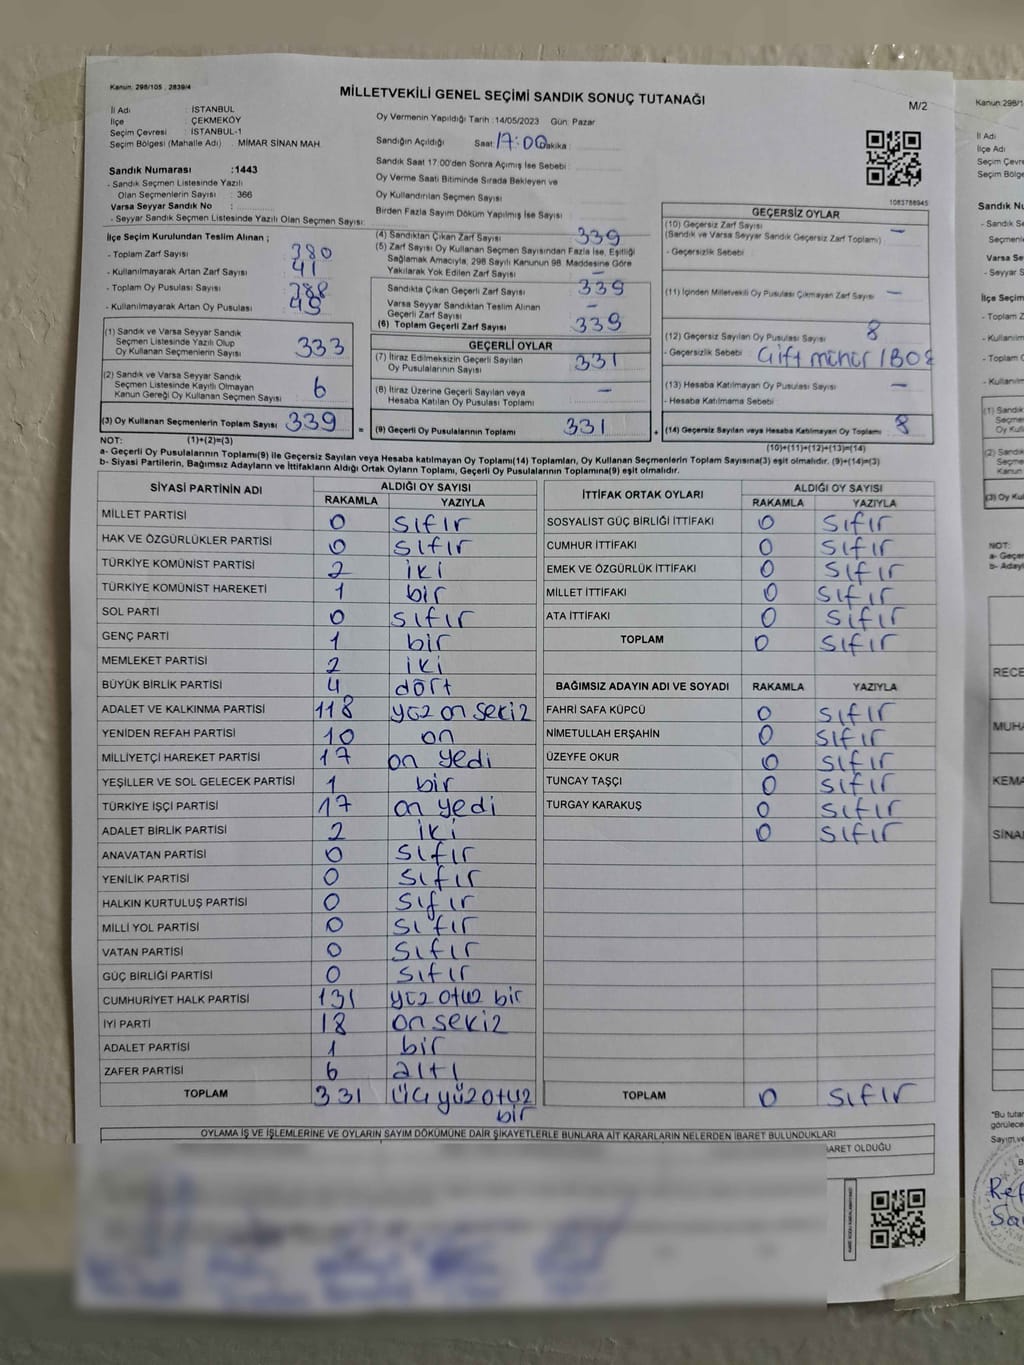 Kanun: 298/105 , 2839/4
MİLLETVEKİLİ GENEL SEÇİMİ SANDIK SONUÇ TUTANAĞI
M/2
İl Adı : İSTANBUL
İlçe : ÇEKMEKÖY
Seçim Çevresi : İSTANBUL-1
Seçim Bölgesi (Mahalle Adı) : MİMAR SİNAN MAH.
Oy Vermenin Yapıldığı Tarih :14/05/2023 Gün: Pazar
Sandığın Açıldığı Saat 17:00 Dakika :
Sandık Saat 17.00'den Sonra Açımış İse Sebebi :
Oy Verme Saati Bitiminde Sırada Bekleyen ve
Oy Kullandırılan Seçmen Sayısı :
Birden Fazla Sayım Döküm Yapılmış İse Sayısı :
Sandık Numarası :1443
- Sandık Seçmen Listesinde Yazılı
Olan Seçmenlerin Sayısı : 366
Varsa Seyyar Sandık No :
- Seyyar Sandık Seçmen Listesinde Yazılı Olan Seçmen Sayısı:
1083788945
İlçe Seçim Kurulundan Teslim Alınan ;
- Toplam Zarf Sayısı : 380
- Kullanılmayarak Artan Zarf Sayısı : 41
- Toplam Oy Pusulası Sayısı : 388
- Kullanılmayarak Artan Oy Pusulası : 49
(1) Sandık ve Varsa Seyyar Sandık
Seçmen Listesinde Yazılı Olup
Oy Kullanan Seçmenlerin Sayısı 333
(2) Sandık ve Varsa Seyyar Sandık
Seçmen Listesinde Kayıtlı Olmayan
Kanun Gereği Oy Kullanan Seçmen Sayısı 6
(3) Oy Kullanan Seçmenlerin Toplam Sayısı 339
(4) Sandıktan Çıkan Zarf Sayısı 339
(5) Zarf Sayısı Oy Kullanan Seçmen Sayısından Fazla İse, Eşitliği
Sağlamak Amacıyla, 298 Sayılı Kanunun 98. Maddesine Göre
Yakılarak Yok Edilen Zarf Sayısı –
Sandıkta Çıkan Geçerli Zarf Sayısı 339
Varsa Seyyar Sandıktan Teslim Alınan
Geçerli Zarf Sayısı –
(6) Toplam Geçerli Zarf Sayısı 339
GEÇERLİ OYLAR
(7) İtiraz Edilmeksizin Geçerli Sayılan
Oy Pusulalarının Sayısı 331
(8) İtiraz Üzerine Geçerli Sayılan veya
Hesaba Katılan Oy Pusulası Toplamı –
= (9) Geçerli Oy Pusulalarının Toplamı 331 +
GEÇERSİZ OYLAR
(10) Geçersiz Zarf Sayısı
(Sandık ve Varsa Seyyar Sandık Geçersiz Zarf Toplamı) –
- Geçersizlik Sebebi :
(11) İçinden Milletvekili Oy Pusulası Çıkmayan Zarf Sayısı –
(12) Geçersiz Sayılan Oy Pusulası Sayısı : 8
- Geçersizlik Sebebi : Çift mühür
(13) Hesaba Katılmayan Oy Pusulası Sayısı –
- Hesaba Katılmama Sebebi :
(14) Geçersiz Sayılan veya Hesaba Katılmayan Oy Toplamı 8
NOT: (1)+(2)=(3)
(10)+(11)+(12)+(13)=(14)
a- Geçerli Oy Pusulalarının Toplamı(9) ile Geçersiz Sayılan veya Hesaba katılmayan Oy Toplamı(14) Toplamları, Oy Kullanan Seçmenlerin Toplam Sayısına(3) eşit olmalıdır. (9)+(14)=(3)
b- Siyasi Partilerin, Bağımsız Adayların ve İttifakların Aldığı Ortak Oyların Toplamı, Geçerli Oy Pusulalarının Toplamına(9) eşit olmalıdır.
SİYASİ PARTİNİN ADI ALDIĞI OY SAYISI
RAKAMLA YAZIYLA
MİLLET PARTİSİ 0 sıfır
HAK VE ÖZGÜRLÜKLER PARTİSİ 0 sıfır
TÜRKİYE KOMÜNİST PARTİSİ 2 iki
TÜRKİYE KOMÜNİST HAREKETİ 1 bir
SOL PARTİ 0 sıfır
GENÇ PARTİ 1 bir
MEMLEKET PARTİSİ 2 iki
BÜYÜK BİRLİK PARTİSİ 4 dört
ADALET VE KALKINMA PARTİSİ 118 yüz on sekiz
YENİDEN REFAH PARTİSİ 10 on
MİLLİYETÇİ HAREKET PARTİSİ 17 on yedi
YEŞİLLER VE SOL GELECEK PARTİSİ 1 bir
TÜRKİYE İŞÇİ PARTİSİ 17 on yedi
ADALET BİRLİK PARTİSİ 2 iki
ANAVATAN PARTİSİ 0 sıfır
YENİLİK PARTİSİ 0 sıfır
HALKIN KURTULUŞ PARTİSİ 0 sıfır
MİLLİ YOL PARTİSİ 0 sıfır
VATAN PARTİSİ 0 sıfır
GÜÇ BİRLİĞİ PARTİSİ 0 sıfır
CUMHURİYET HALK PARTİSİ 131 yüz otuz bir
İYİ PARTİ 18 on sekiz
ADALET PARTİSİ 1 bir
ZAFER PARTİSİ 6 altı
TOPLAM 331 üç yüz otuz bir
İTTİFAK ORTAK OYLARI ALDIĞI OY SAYISI
RAKAMLA YAZIYLA
SOSYALİST GÜÇ BİRLİĞİ İTTİFAKI 0 sıfır
CUMHUR İTTİFAKI 0 sıfır
EMEK VE ÖZGÜRLÜK İTTİFAKI 0 sıfır
MİLLET İTTİFAKI 0 sıfır
ATA İTTİFAKI 0 sıfır
TOPLAM 0 sıfır
BAĞIMSIZ ADAYIN ADI VE SOYADI RAKAMLA YAZIYLA
FAHRİ SAFA KÜPCÜ 0 sıfır
NİMETULLAH ERŞAHİN 0 sıfır
ÜZEYFE OKUR 0 sıfır
TUNCAY TAŞÇI 0 sıfır
TURGAY KARAKUŞ 0 sıfır
0 sıfır
TOPLAM 0 sıfır
OYLAMA İŞ VE İŞLEMLERİNE VE OYLARIN SAYIM DÖKÜMÜNE DAİR ŞİKAYETLERLE BUNLARA AİT KARARLARIN NELERDEN İBARET BULUNDUKLARI
BARET OLDUĞU
Kanun:298/1
İl Adı
İlçe Adı
Seçim Çevre
Seçim Bölge
Sandık Nu
- Sandık S
Seçmenle
Varsa Se
- Seyyar S
İlçe Seçim
- Toplam Z
- Kullanılm
- Toplam
- Kullanılm
(1) Sandık
Seçme
Oy Ku
(2) Sandık
Seçme
Kanun
(3) Oy Kul
NOT:
a- Geçer
b- Aday
RECE
MUHA
KEMA
SİNA
"Bu tutan
görülece
Sayım ve